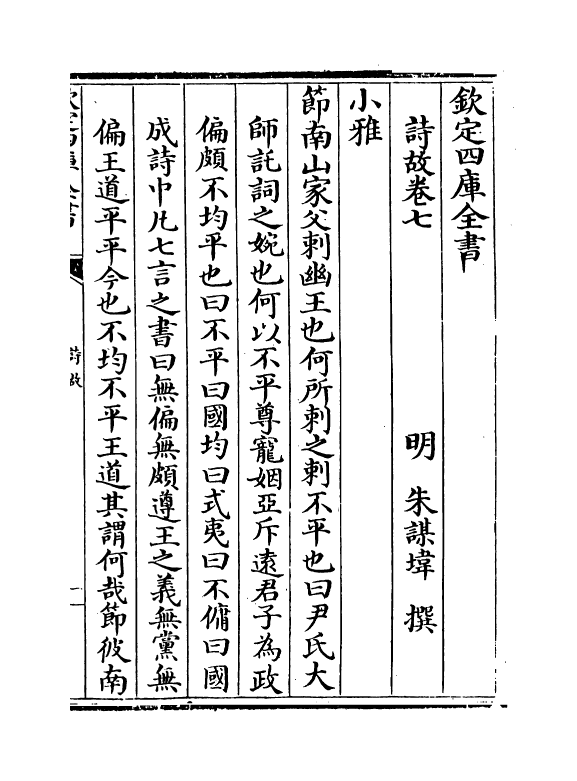 欽定四庫全書
詩故卷七
明　朱謀㙔　撰
小雅
節南山家父刺幽王也何所刺之刺不平也曰尹氏大
師託詞之婉也何以不平尊寵姻亞斥遠君子為政
偏頗不均平也曰不平曰國均曰式夷曰不傭曰國
成詩中凡七言之書曰無偏無頗遵王之義無黨無
偏王道平平今也不均不平王道其謂何哉節彼南
詩故